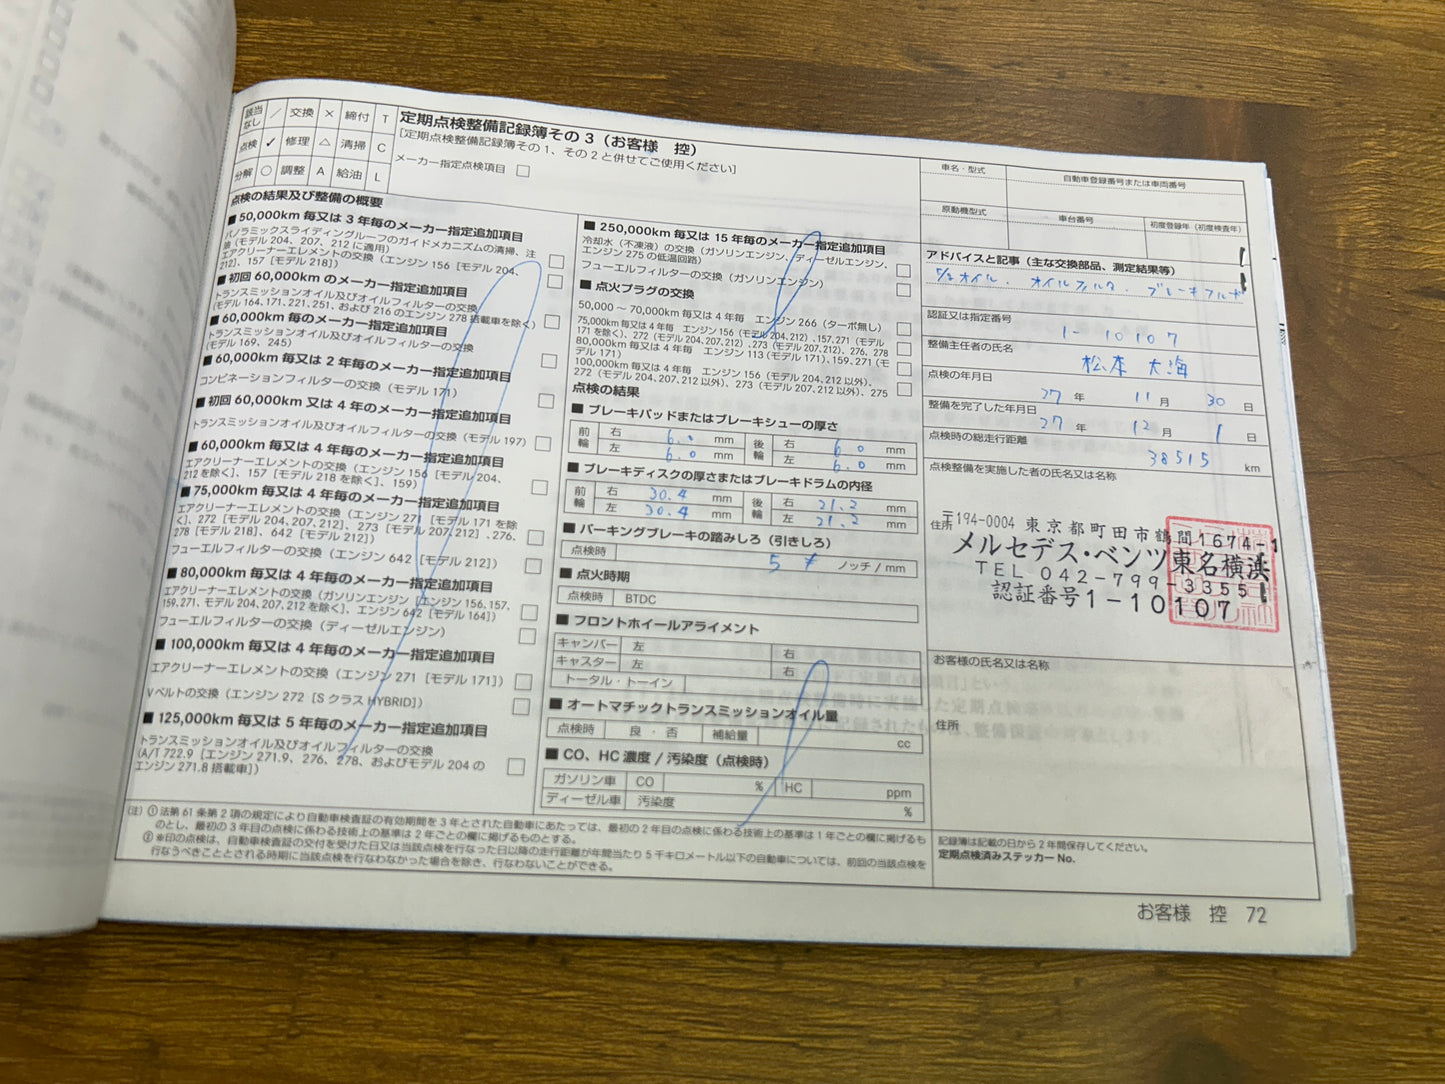 該当なし ／ 交換 × 締付 T
点検 ✓ 修理 △ 清掃 C
分解 ○ 調整 A 給油 L
定期点検整備記録簿その3（お客様 控）
[定期点検整備記録簿その1、その2と併せてご使用ください]
メーカー指定点検項目 □
点検の結果及び整備の概要
■ 50,000km 毎又は3年毎のメーカー指定追加項目
パノラミックスライディングルーフのガイドメカニズムの清掃、注
油（モデル204、207、212に適用） □
エアクリーナーエレメントの交換（エンジン156［モデル204、
212］、157［モデル218］） □
■ 初回60,000kmのメーカー指定追加項目
トランスミッションオイル及びオイルフィルターの交換
（モデル164、171、221、251、および216のエンジン278搭載車を除く） □
■ 60,000km 毎のメーカー指定追加項目
トランスミッションオイル及びオイルフィルターの交換
（モデル169、245） □
■ 60,000km 毎又は2年毎のメーカー指定追加項目
コンビネーションフィルターの交換（モデル171） □
■ 初回60,000km又は4年のメーカー指定追加項目
トランスミッションオイル及びオイルフィルターの交換（モデル197） □
■ 60,000km 毎又は4年毎のメーカー指定追加項目
エアクリーナーエレメントの交換（エンジン156［モデル204、
212を除く］、157［モデル218を除く］、159） □
■ 75,000km 毎又は4年毎のメーカー指定追加項目
エアクリーナーエレメントの交換（エンジン271［モデル171を除
く］、272［モデル204、207、212］、273［モデル207、212］、276、
278［モデル218］、642［モデル212］） □
フューエルフィルターの交換（エンジン642［モデル212］） □
■ 80,000km 毎又は4年毎のメーカー指定追加項目
エアクリーナーエレメントの交換（ガソリンエンジン［エンジン156、157、
159、271、モデル204、207、212を除く］、エンジン642［モデル164］） □
フューエルフィルターの交換（ディーゼルエンジン） □
■ 100,000km 毎又は4年毎のメーカー指定追加項目
エアクリーナーエレメントの交換（エンジン271［モデル171］） □
Vベルトの交換（エンジン272［SクラスHYBRID］） □
■ 125,000km 毎又は5年毎のメーカー指定追加項目
トランスミッションオイル及びオイルフィルターの交換
（A/T 722.9［エンジン271.9、276、278、およびモデル204の
エンジン271.8搭載車］） □
■ 250,000km 毎又は15年毎のメーカー指定追加項目
冷却水（不凍液）の交換（ガソリンエンジン、ディーゼルエンジン、
エンジン275の低温回路） □
フューエルフィルターの交換（ガソリンエンジン） □
■ 点火プラグの交換
50,000～70,000km毎又は4年毎 エンジン266（ターボ無し） □
75,000km毎又は4年毎 エンジン156（モデル204、212）、157、271（モデル
171を除く）、272（モデル204、207、212）、273（モデル207、212）、276、278 □
80,000km毎又は4年毎 エンジン113（モデル171）、159、271（モ
デル171） □
100,000km毎又は4年毎 エンジン156（モデル204、212以外）、
272（モデル204、207、212以外）、273（モデル207、212以外）、275 □
点検の結果
■ ブレーキパッドまたはブレーキシューの厚さ
前輪 右 6.0 mm 後輪 右 6.0 mm
左 6.0 mm 左 6.0 mm
■ ブレーキディスクの厚さまたはブレーキドラムの内径
前輪 右 30.4 mm 後輪 右 21.2 mm
左 30.4 mm 左 21.2 mm
■ パーキングブレーキの踏みしろ（引きしろ）
点検時 5 ノッチ / mm
■ 点火時期
点検時 BTDC
■ フロントホイールアライメント
キャンバー 左 右
キャスター 左 右
トータル・トーイン
■ オートマチックトランスミッションオイル量
点検時 良・否 補給量 cc
■ CO、HC 濃度 / 汚染度（点検時）
ガソリン車 CO % HC ppm
ディーゼル車 汚染度 %
車名・型式 自動車登録番号または車両番号
原動機型式 車台番号 初度登録年（初度検査年）
アドバイスと記事（主な交換部品、測定結果等）
オイル． オイルフィルタ． ブレーキフルード
認証又は指定番号
1-10107
整備主任者の氏名
松本 大海
点検の年月日
27 年 11 月 30 日
整備を完了した年月日
27 年 12 月 1 日
点検時の総走行距離
38515 km
点検整備を実施した者の氏名又は名称
住所
〒194-0004 東京都町田市鶴間1674-1
メルセデス・ベンツ東名横浜
TEL 042-799-3355
認証番号1-10107
お客様の氏名又は名称
住所
（注）①法第61条第2項の規定により自動車検査証の有効期間を3年とされた自動車にあたっては、最初の2年目の点検に係わる技術上の基準は1年ごとの欄に掲げるも
のとし、最初の3年目の点検に係わる技術上の基準は2年ごとの欄に掲げるものとする。
②※印の点検は、自動車検査証の交付を受けた日又は当該点検を行なった日以降の走行距離が年間当たり5千キロメートル以下の自動車については、前回の当該点検を
行なうべきこととされる時期に当該点検を行なわなかった場合を除き、行なわないことができる。
記録簿は記載の日から2年間保存してください。
定期点検済みステッカーNo.
お客様 控 72